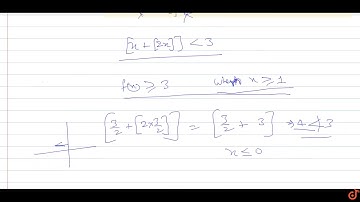 [x + [2x]] < 3
f(x) ⩾ 3 when x ⩾ 1
[3/2 + [2×3/2]] = [3/2 + 3] → 4 ≮ 3
x ≤ 0